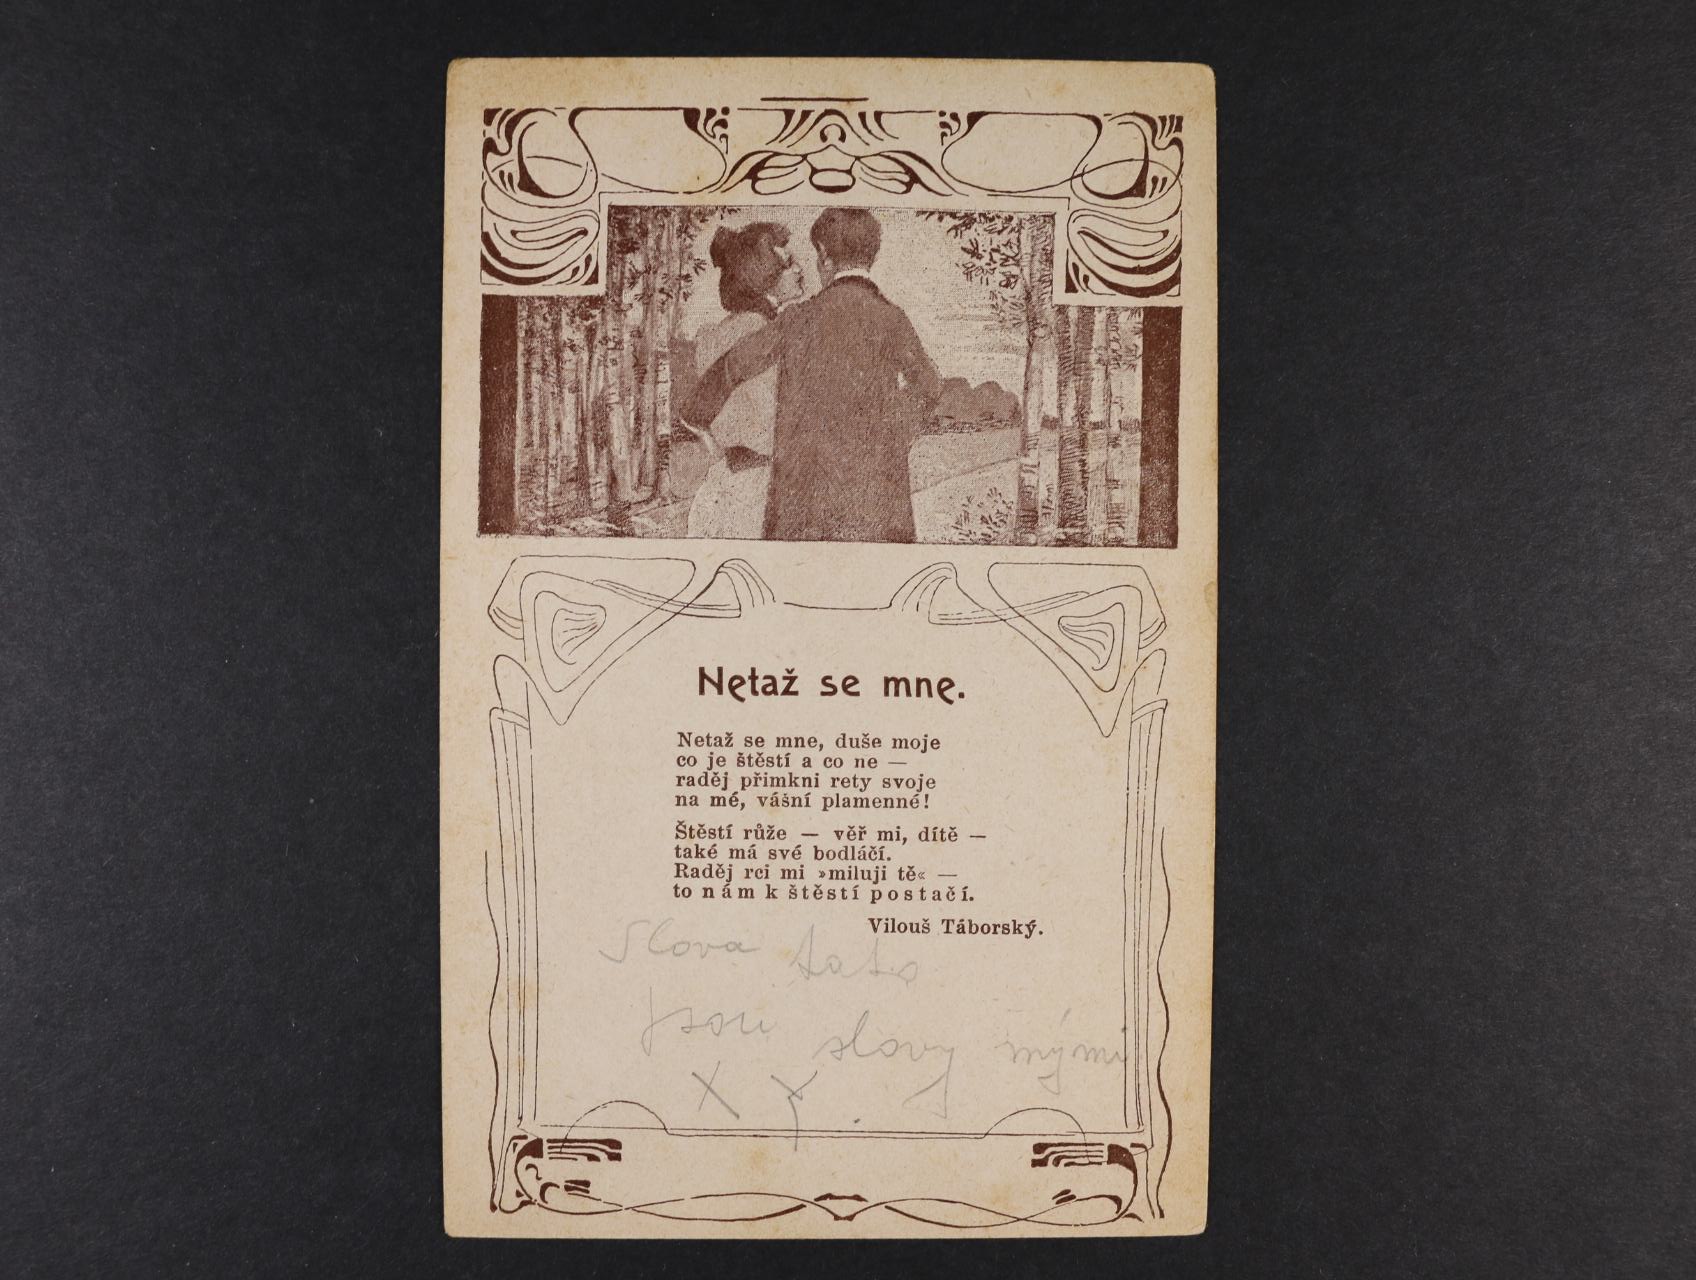 Netaž se mne.
Netaž se mne, duše moje
co je štěstí a co ne —
raděj přimkni rety svoje
na mé, vášní plamenné!
Štěstí růže — věř mi, dítě —
také má své bodláčí.
Raděj rci mi »miluji tě« —
to nám k štěstí postačí.
Vilouš Táborský.
Slova tato
jsou slovy mými